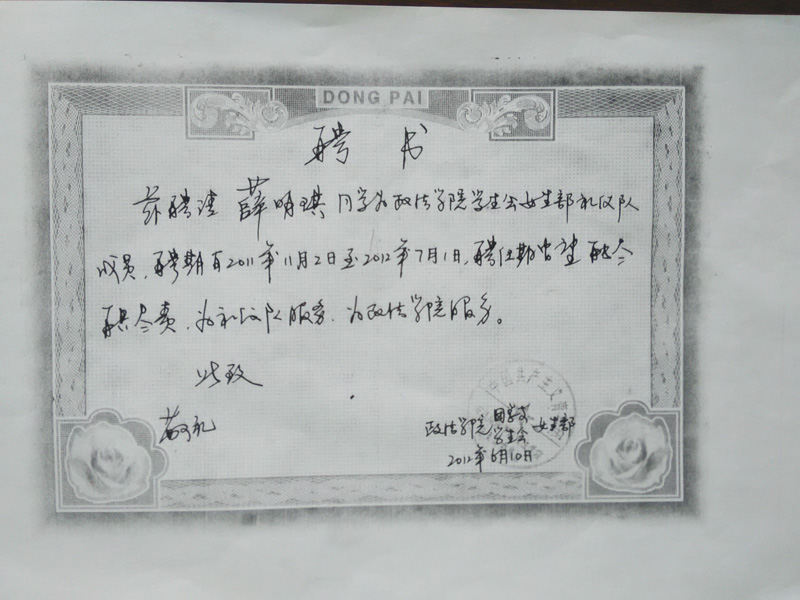 DONG PAI
聘书
兹聘请 薛明琪 同学为政法学院学生会女生部礼仪队
成员，聘期自2011年11月2日至2012年7月1日，聘任期
职尽责，为礼仪队服务，为政法学院服务。
此致
敬礼
中国共产主义青
政法学院团学会女生部
学生会
2012年6月10日